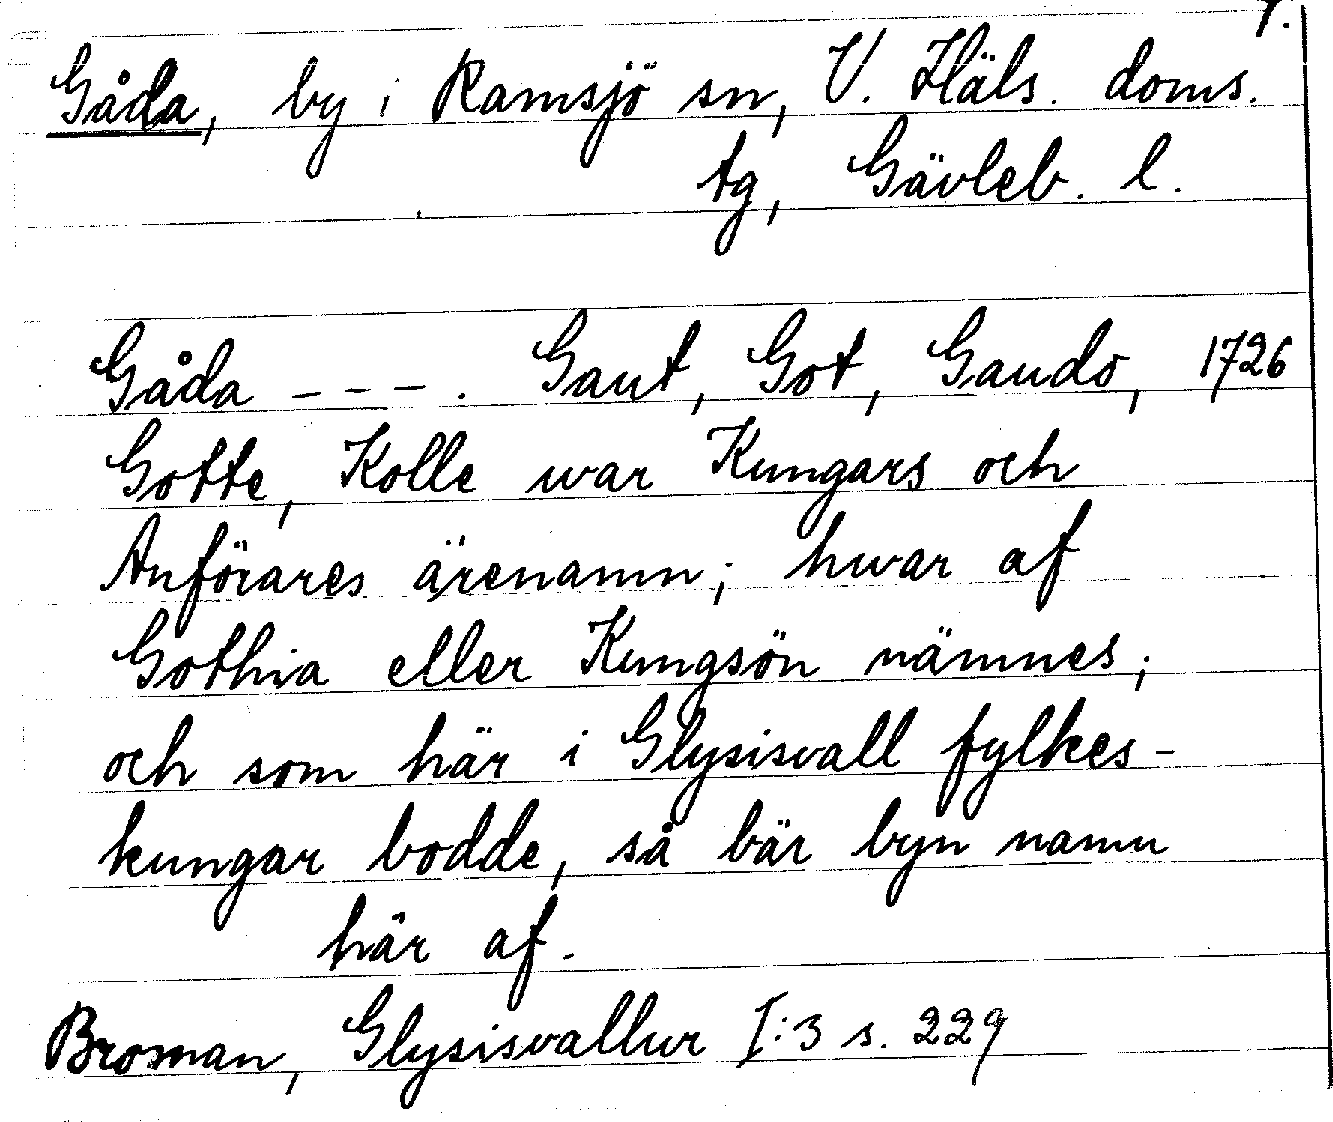 Gåda, by i Ramsjö sn, V. Häls. doms.
tg, Gävleb. l.
Gåda - - - . Gaut, Got, Gaudo, 1726
Gotte, Kolle war Kungars och
Anförares ärenamn; hwar af
Gothia eller Kungsön nämnes;
och som här i Glysisvall fylkes-
kungar bodde, så bär byn namn
här af.
Broman, Glysisvallur I:3 s. 229